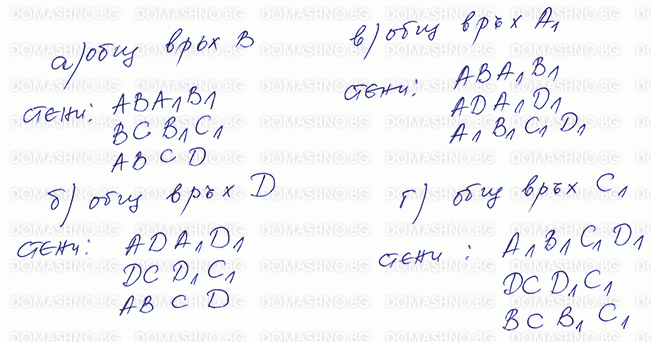 а) общ връх B
стени: ABA₁B₁
BCB₁C₁
ABCD
б) общ връх D
стени: ADA₁D₁
DCD₁C₁
ABCD
в) общ връх A₁
стени: ABA₁B₁
ADA₁D₁
A₁B₁C₁D₁
г) общ връх C₁
стени: A₁B₁C₁D₁
DCD₁C₁
BCB₁C₁